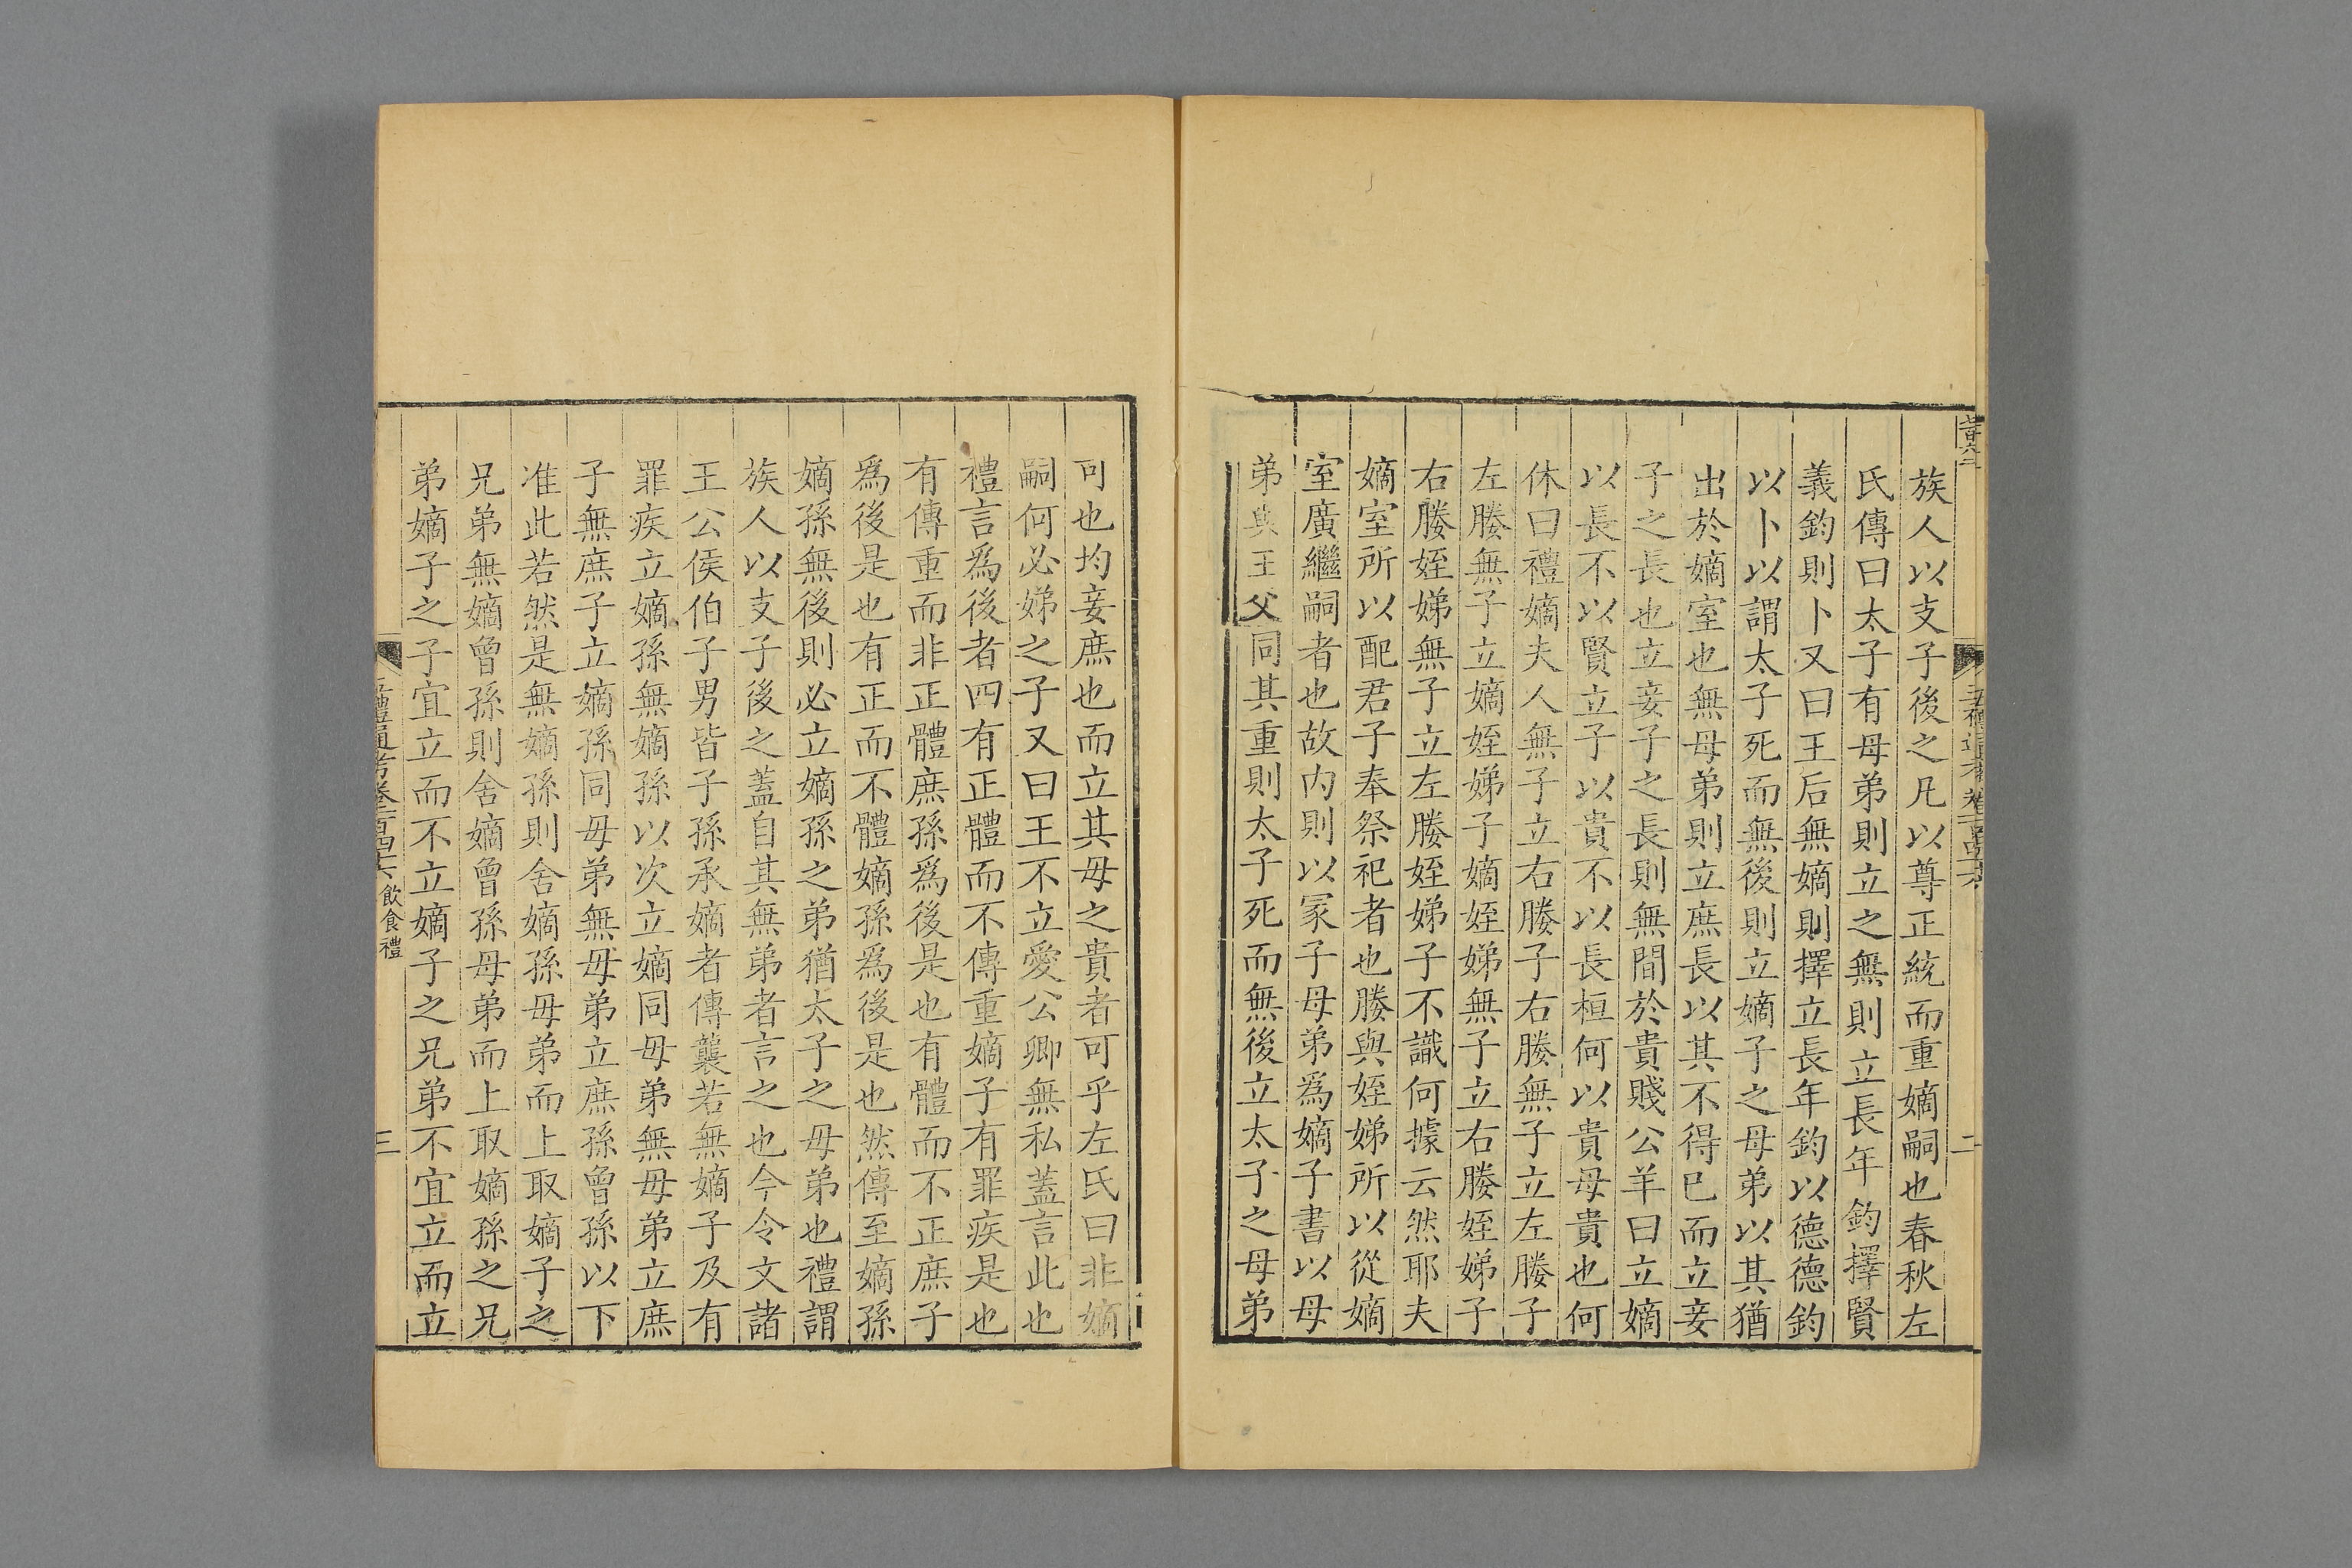 族人以支子後之凡以尊正統而重嫡嗣也春秋左
氏傳曰太子有母弟則立之無則立長年鈞擇賢
義鈞則卜又曰王后無嫡則擇立長年鈞以德德鈞
以卜以謂太子死而無後則立嫡子之母弟以其猶
出於嫡室也無母弟則立庶長以其不得已而立妾
子之長也立妾子之長則無間於貴賤公羊曰立嫡
以長不以賢立子以貴不以長桓何以貴母貴也何
休曰禮嫡夫人無子立右媵子右媵無子立左媵子
左媵無子立嫡姪娣子嫡姪娣無子立右媵姪娣子
右媵姪娣無子立左媵姪娣子不識何據云然耶夫
嫡室所以配君子奉祭祀者也媵與姪娣所以從嫡
室廣繼嗣者也故内則以冢子母弟為嫡子書以母
弟與王父同其重則太子死而無後立太子之母弟
可也均妾庶也而立其母之貴者可乎左氏曰非嫡
嗣何必娣之子又曰王不立愛公卿無私蓋言此也
禮言為後者四有正體而不傳重嫡子有罪疾是也
有傳重而非正體庶孫為後是也有體而不正庶子
為後是也有正而不體嫡孫為後是也然傳至嫡孫
嫡孫無後則必立嫡孫之弟猶太子之母弟也禮謂
族人以支子後之蓋自其無弟者言之也今令文諸
王公侯伯子男皆子孫承嫡者傳襲若無嫡子及有
罪疾立嫡孫無嫡孫以次立嫡同母弟無母弟立庶
子無庶子立嫡孫同母弟無母弟立庶孫曾孫以下
准此若然是無嫡孫則舍嫡孫母弟而上取嫡子之
兄弟無嫡曾孫則舍嫡曾孫母弟而上取嫡孫之兄
弟嫡子之子宜立而不立嫡子之兄弟不宜立而立
禮通考卷二百四十六 飲食禮
三